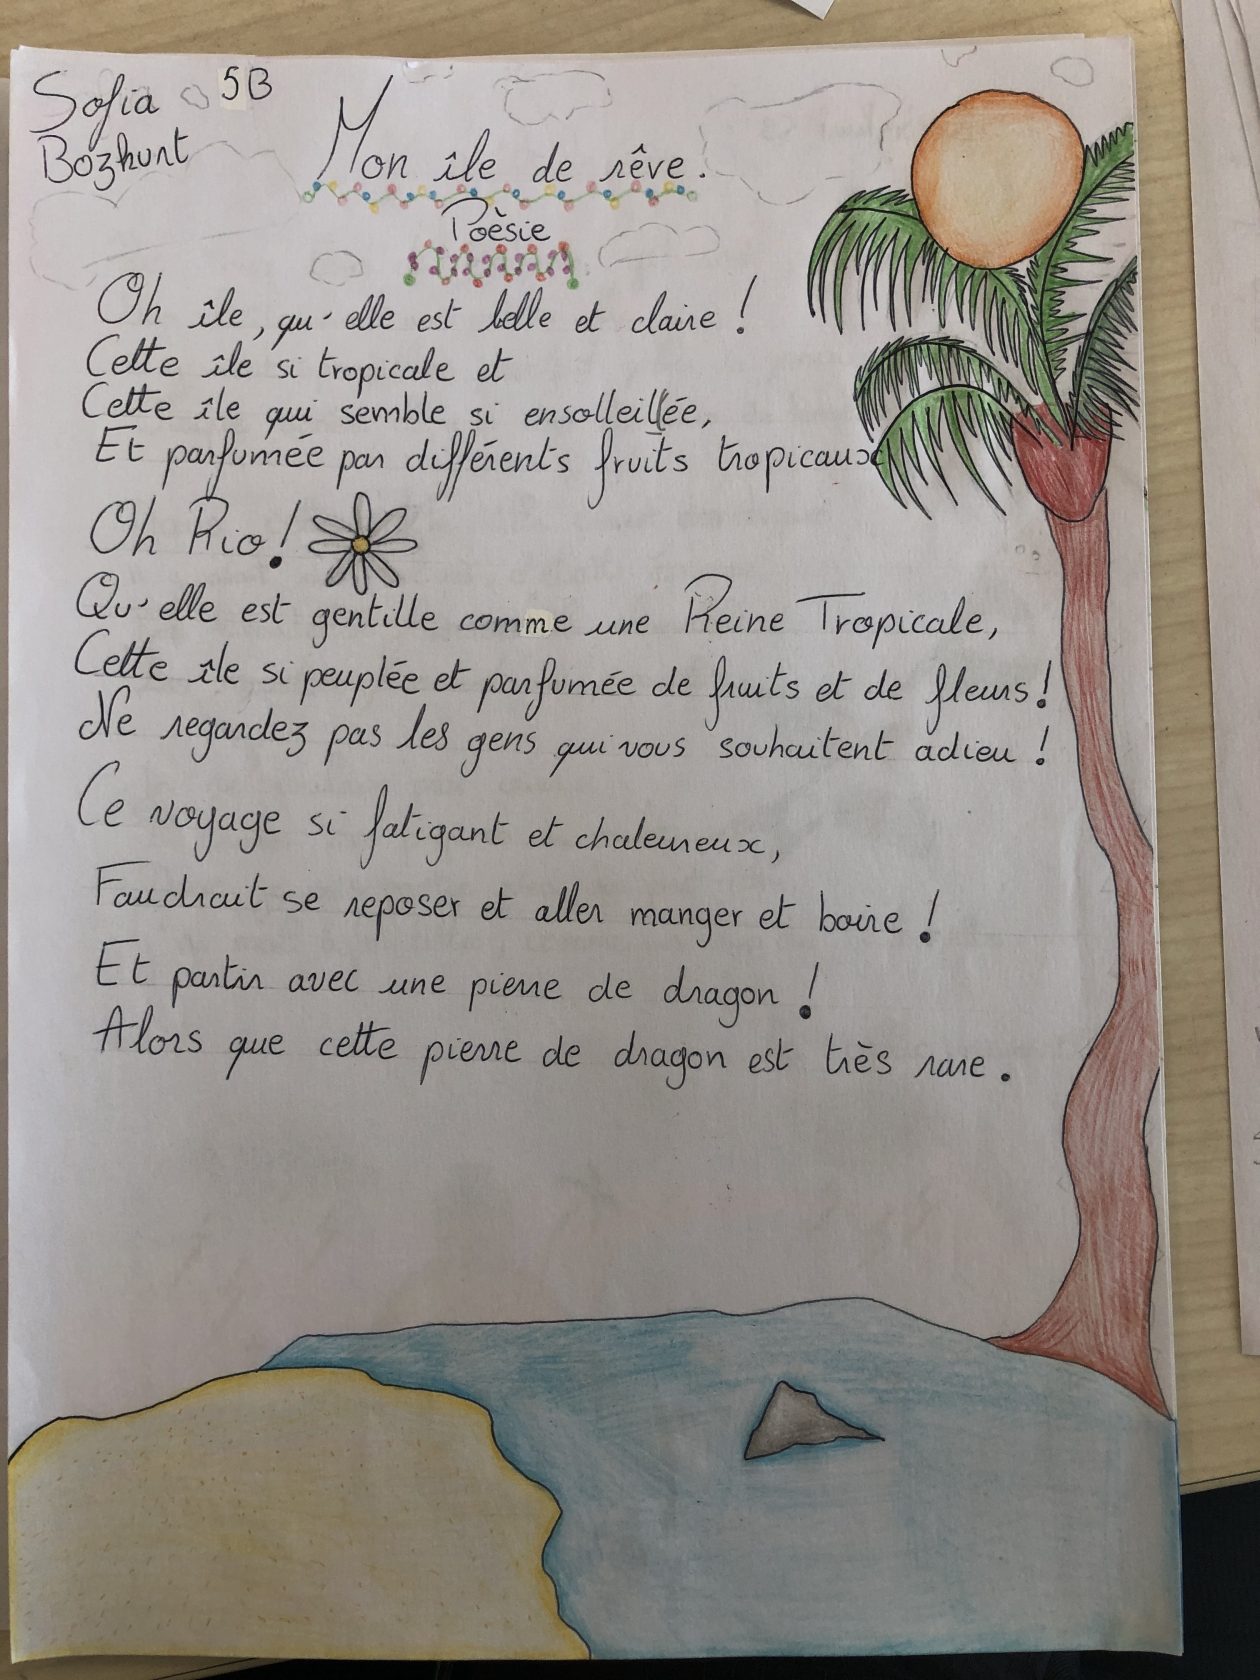 Sofia 5B
Bozkurt
Mon île de rêve.
Poèsie
Oh île, qu'elle est belle et claire !
Cette île si tropicale et
Cette île qui semble si ensolleillée,
Et parfumée par différents fruits tropicaux
Oh Rio !
Qu'elle est gentille comme une Reine Tropicale,
Cette île si peuplée et parfumée de fruits et de fleurs !
Ne regardez pas les gens qui vous souhaitent adieu !
Ce voyage si fatigant et chaleureux,
Faudrait se reposer et aller manger et boire !
Et partir avec une pierre de dragon !
Alors que cette pierre de dragon est très rare.